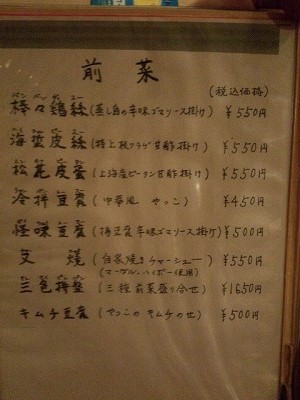 前菜
(税込価格)
バンバンジー
棒々鶏絲 (蒸し鳥の辛味ゴマソース掛け) ¥550円
海蜇皮絲 (特上クラゲ甘酢掛け) ¥550円
松花皮蛋 (上海産ピータン甘酢掛け) ¥550円
冷拌豆腐 (中華風 やっこ) ¥450円
怪味豆腐 (棒豆腐辛味ゴマソース掛け) ¥500円
叉燒 (自家焼きチャーシュー) ¥550円
三色拼盤 (三種前菜盛り合せ) ¥1650円
キムチ豆腐 (やっこのキムチのせ) ¥500円